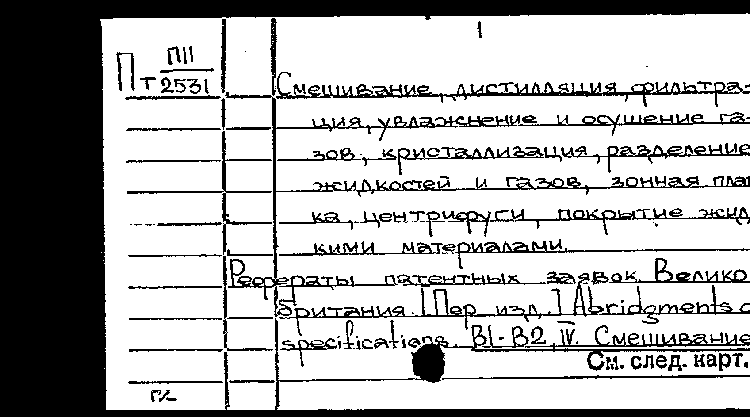 1
П т ПII/2531
Смешивание, дистилляция, фильтра-
ция, увлажнение и осушение га-
зов, кристаллизация, разделение
жидкостей и газов, зонная плав
ка, центрифуги, покрытие жид
кими материалами.
Рефераты патентных заявок. Велико
британия. [Пер. изд.] Abridgments
specifications. B1-B2, IV. Смешивание
См. след. карт.